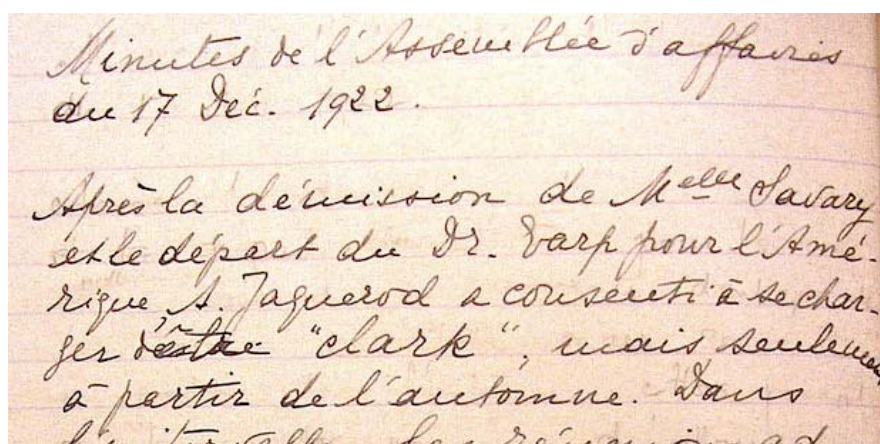 Minutes de l'Assemblée d'affaires
du 17 Déc. 1922.
Après la démission de Melle Savary
et le départ du Dr. Earp pour l'Amé-
rique, A. Jaquerod a consenti à se char-
ger d'être "clark", mais seulement
à partir de l'automne. Dans